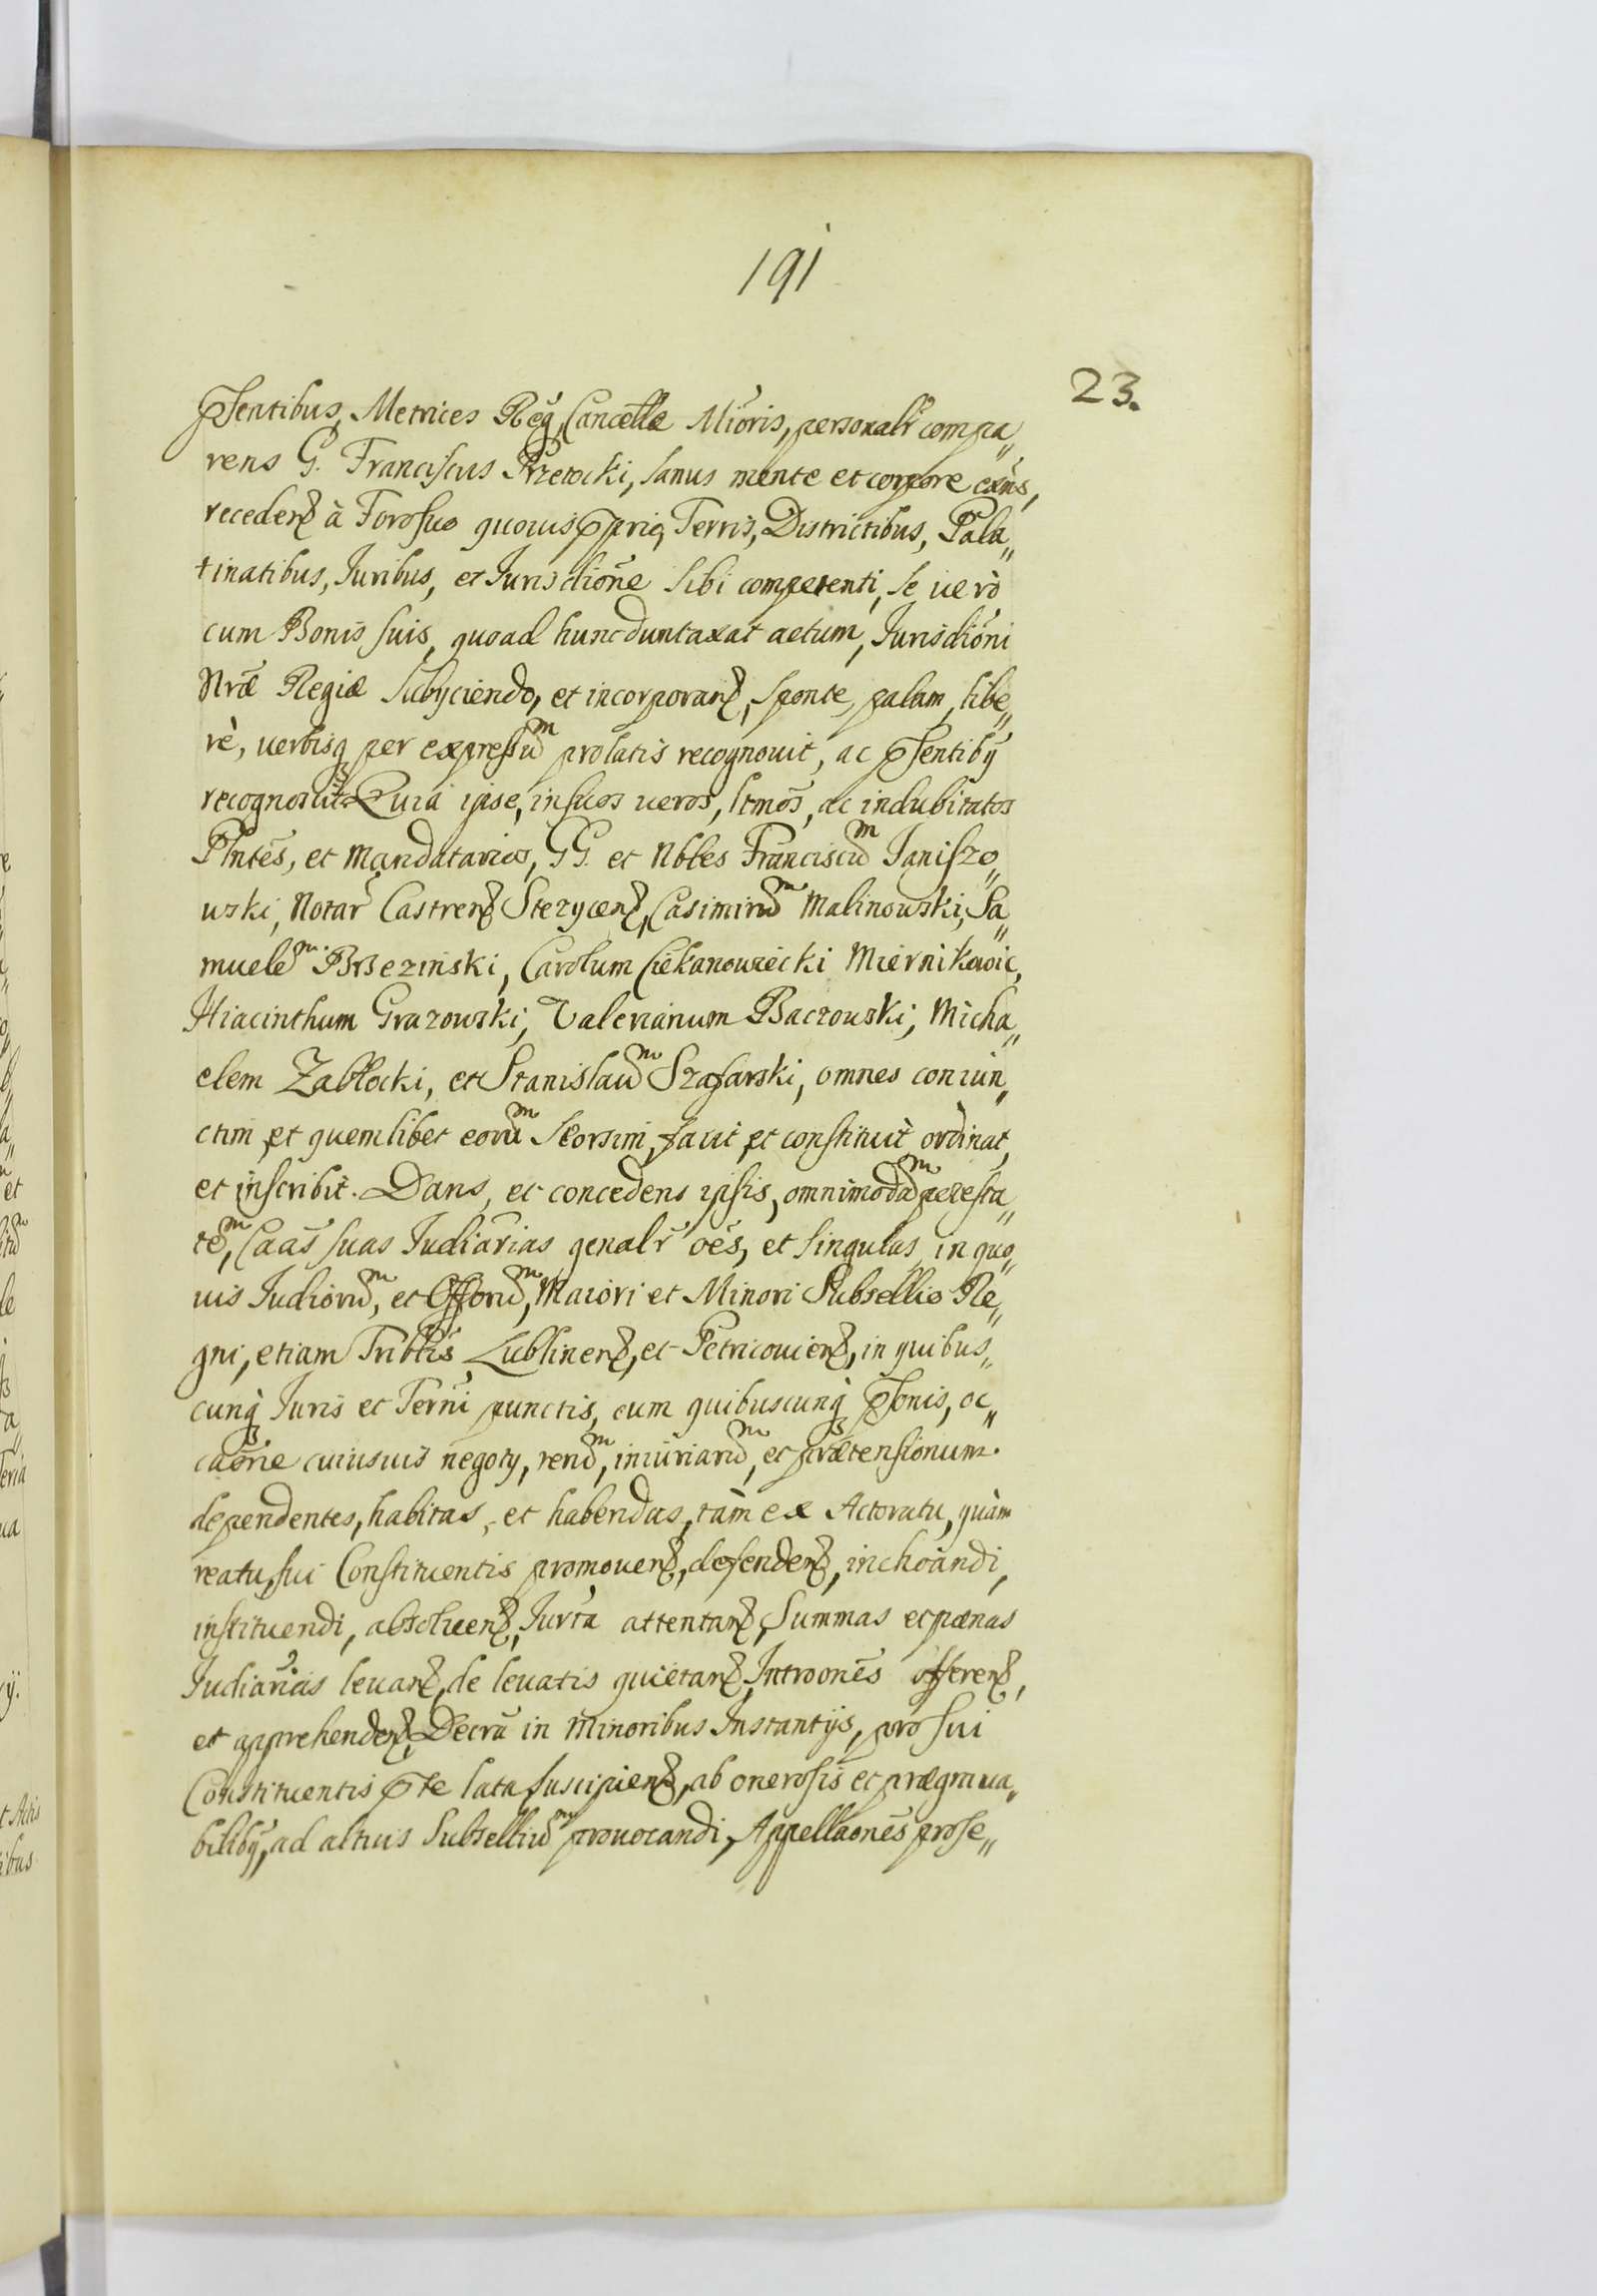 191
23.
Psentibus, Metrices Reg, Cancellæ Miōris, personalr̄ compa„
rens G. Franciscus Przetocki, sanus mente et corpore exñs,
recedenꝫ à Foro suo quouis pprio, Terris, Districtibus, Pala„
tinatibus, Juribus, et Jurisdiōne sibi competenti, se uerò
cum Bonis suis, quoad hunc duntaxat actum, Jurisdiōni
Nræ Regiæ subyciendo, et incorporanꝫ, sponte, palam, libe„
rè, uerbisq per expressūm prolatis recognouit, ac psentiby
recognoscit. Quia ipse, in suos ueros, ltmos, ac indubitatos
Plntes, et Mandatarios, GG. et Nbles Franciscūm Janiszo„
wski, Notar̄ Castrenꝫ Stezycenꝫ, Casimirūm Malinowski, Sa„
muelēm Brzezinski, Carolum Ciekanowiecki Miernikowic,
Hiacinthum Grazowski, Valerianum Baczowski, Micha„
elem Zabłocki, et Stanislaūm Szafarski, omnes coniun„
ctim, et quemlibet eorūm seorsim, fauit, et constituit ordinat,
et inscribit. Dans, et concedens ipsis, omnimodām potesta„
tēm, Caās suas Judiārias genalr̄ oēs, et singulas, in quo„
uis Judiorūm, et Offorūm, Maiori et Minori Subsellio Re„
gni, etiam Triblis Lublinenꝫ, et Petricouienꝫ, in quibus„
cunq Juris et Terñi punctis, cum quibuscunq psonis, oc„
caōne cuiusuis negoty, rerūm, iniuriarūm, et prætensionum.
dependentes, habitas, et habendas, tàm ex Actoratu, quàm
reatu, sui Constituentis promouenꝫ, defendenꝫ, inchoandi,
instituendi, absoluenꝫ, Jurta attentanꝫ, Summas et pænas
Judiarias leuanꝫ, de leuatis quietanꝫ, Introonēs offerenꝫ,
et apprehendenꝫ, Decrā in Minoribus Instantijs, pro sui
Constituentis pte lata suscipienꝫ, ab onerosis et prægraua„
biliby, ad altius Subselliūm prouocandi, Appellaonēs prose„